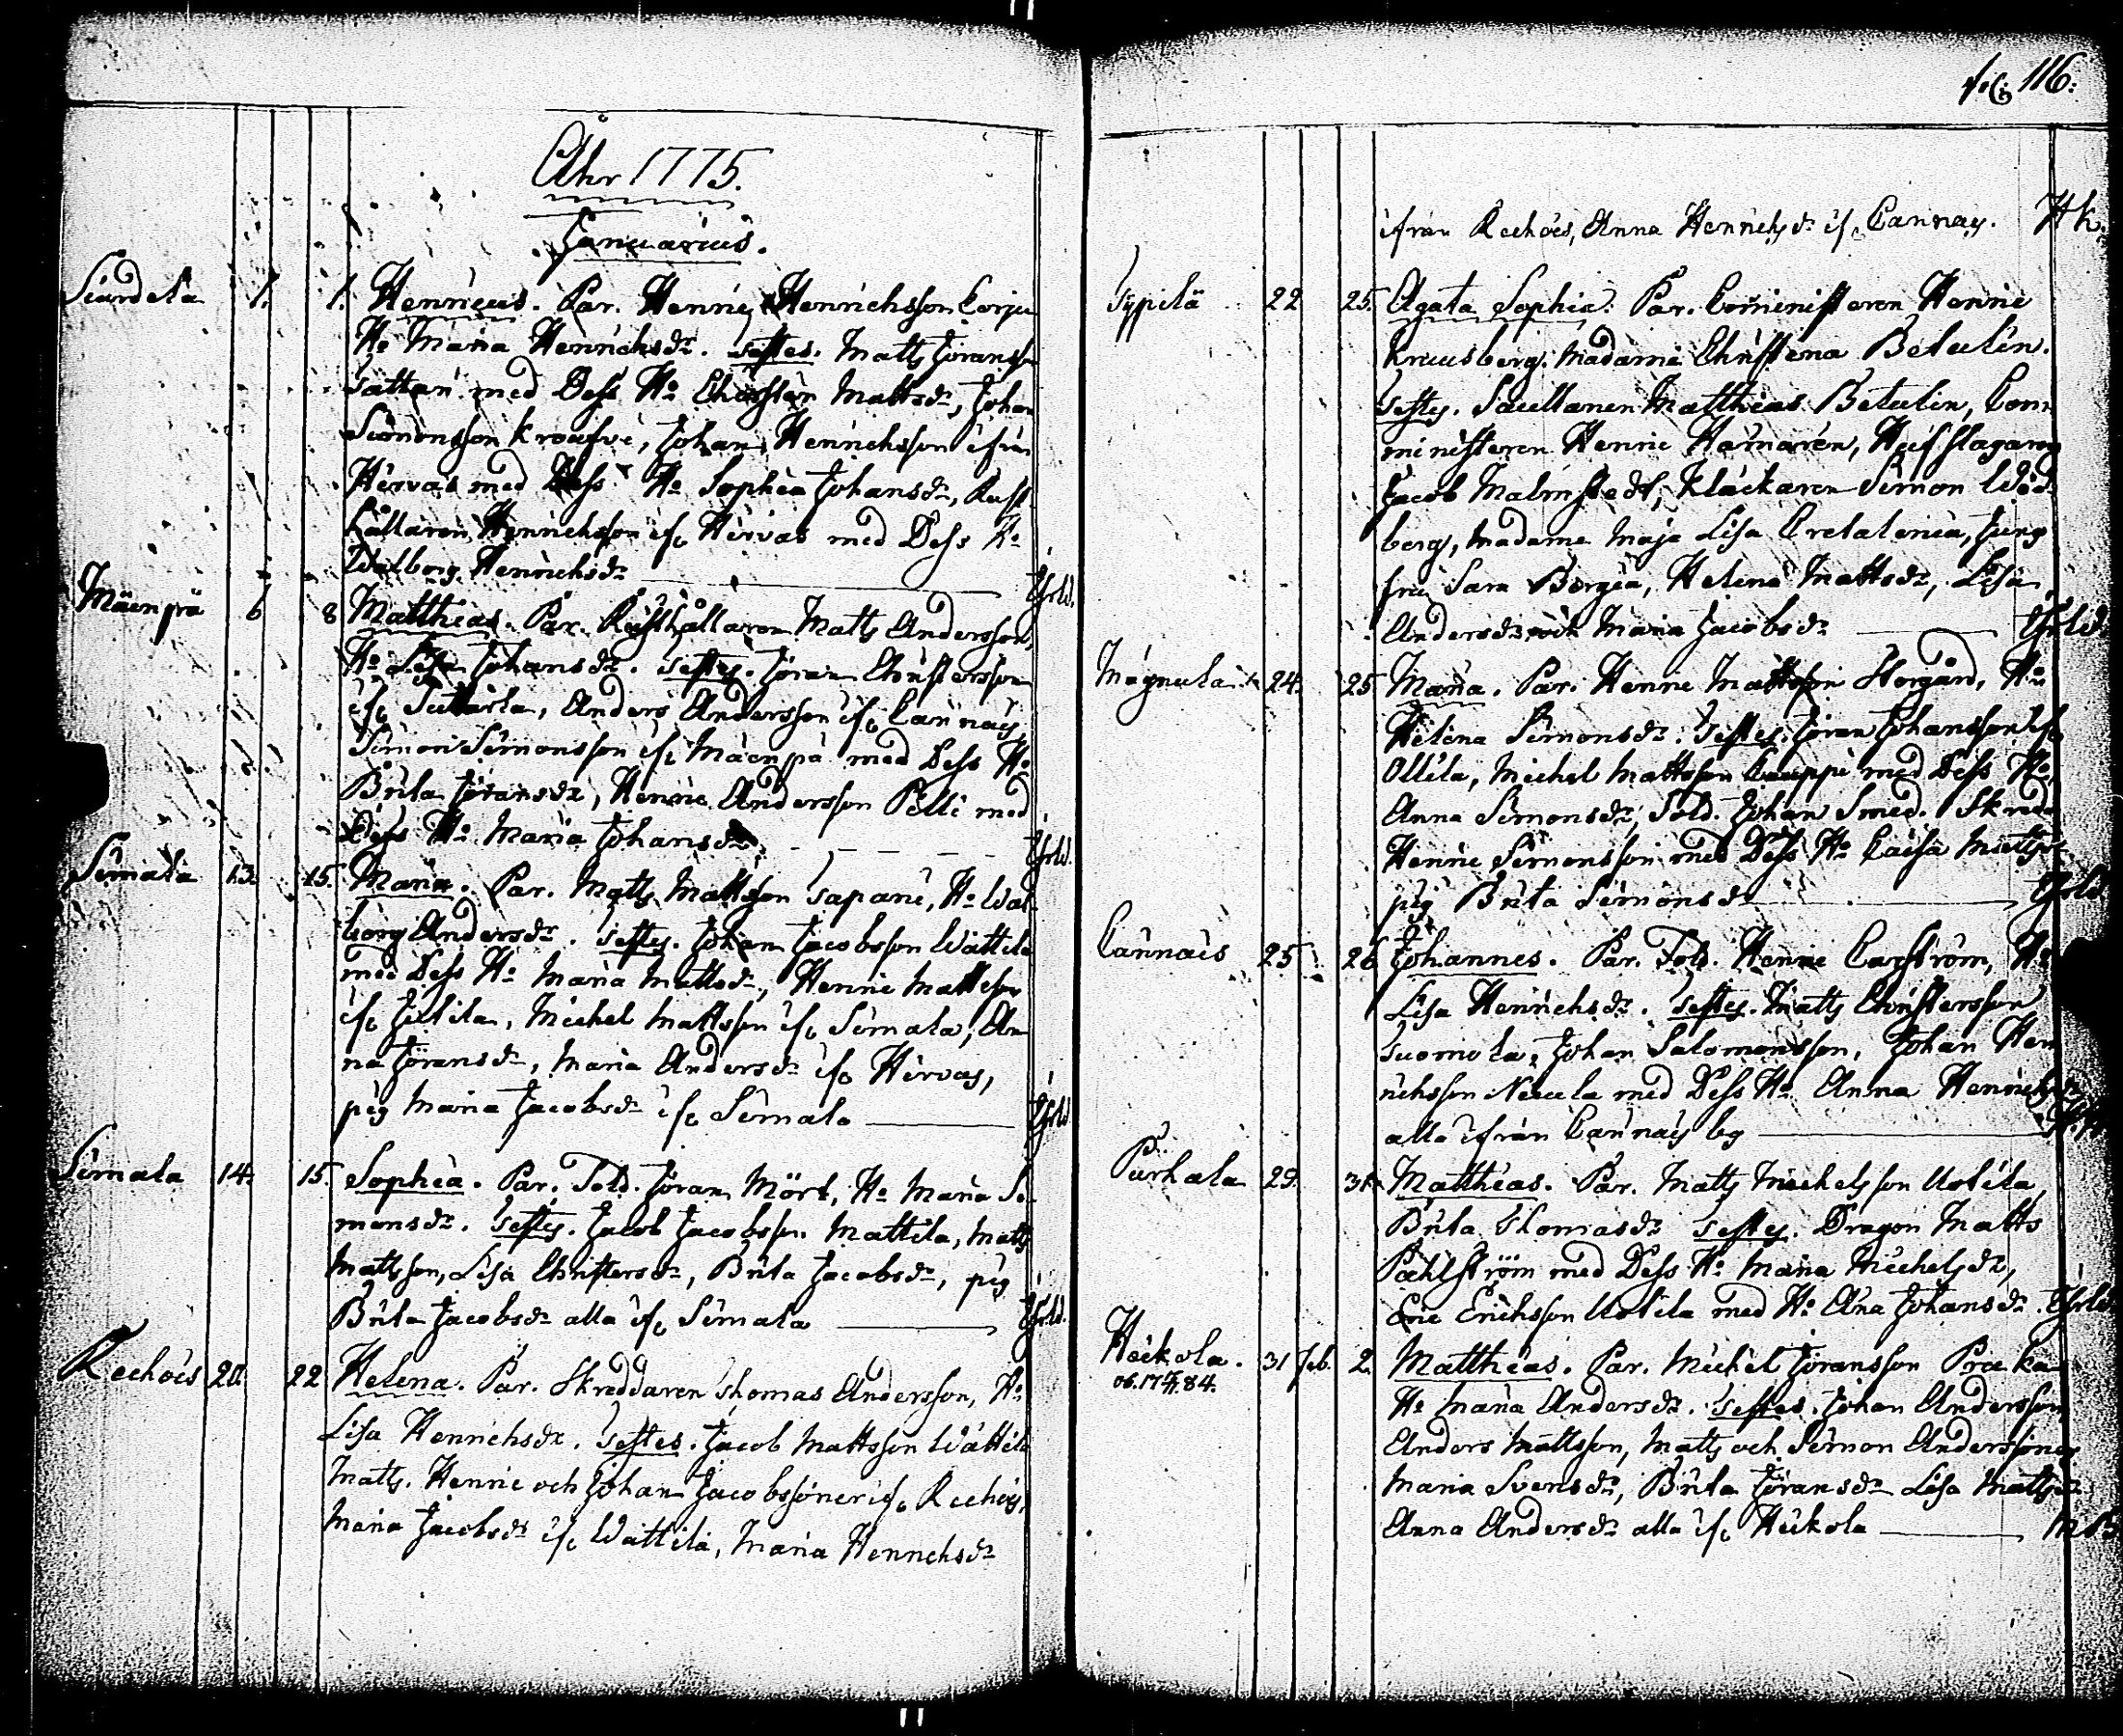 fol: 116:
Åhr 1775.
Januarius.
Siurdela 1. 1. Henricus. Par. Henric Henrichsson Corju
Ho Maria Henrichsdr. Testes. Matts Jöransson
Sattan med Dess Ho Christin Mattsdr, Johan
Simonsson Kroufvi, Johan Henrichsson ifrån
Hirvas med Dess Ho Sophia Johansdr, Rust
hållaren Henrichsson if. Hirvas med Dess Ho
Walborg Henrichsdr
Mäenpä 6 8 Matthias. Par. Rusthållaren Matts Andersson,
Ho Lisa Johansdr. Testes. Jöran Christersson
if. Suttarla, Anders Andersson if. Cannais
Simon Simonsson if. Mäenpä med Dess Ho
Brita Jöransdr, Henric Andersson Pelli med
Dess Ho Maria Johansdr
Simala 13. 15. Maria. Par. Matts Mattsson Tapani, Ho Wal
borg Andersdr. Testes. Johan Jacobsson Wättilä
med Dess Ho Maria Mattsdr, Henric Mattsson
if. Jutila, Michel Mattsson if. Simala, An
na Jöransdr, Maria Andersdr if. Hirvas,
pig Maria Jacobsdr if. Simala
Simala 14. 15. Sophia. Par. Sold. Jöran Mört, Ho Maria Si
monsdr. Testes. Jacob Jacobsson Mattila, Matts
Mattsson, Lisa Christersdr, Brita Jacobsdr, pig
Brita Jacobsdr alla if. Simala
Reehois 20. 22 Helena. Par. Skreddaren Thomas Andersson, Ho
Lisa Henrichsdr. Testes. Jacob Mattsson Wättilä
Matts. Henric och Johan Jacobssöner if. Reehois,
Maria Jacobsdr if. Wättilä, Maria Henrichsdr
ifrån Reehois, Anna Henrichsdr if. Cannais. H k.
Typpilä 22 25. Agata Sophia. Par. Comministeren Henric
Kruusberg. Madame Christina Betulin.
Testes. Matthias Betulin, Com
ministeren Henric Hamarén, Hofslagaren
Jacob Malmstedt, Klåckaren Simon Wid
berg, Madame Maja Lisa, Jung
fru Sara Borgia, Helena Mattsdr, Lisa
Andersdr och Maria Jacobsdr
Magnula 24. 25 Maria. Par. Henric Mattsson Storgård, Ho
Helena Simonsdr. Testes. Jöran Johansson if.
Ollila, Michel Mattsson Cauppi med Dess Ho
Anna Simonsdr, Sold. Johan Smed. Skredd
Henric Simonsson med Dess Ho Caisa Mattsdr
pig Brita Simonsdr
Cannais 25 26 Johannes. Par. Sold. Henric Ho
Lisa Henrichsdr. Testes. Matts Christersson
Suomela, Johan Salomonsson, Johan Hen
richsson Nicula med Dess Ho Anna Henrichsdr
alla ifrån Cannais by
Purhala 29. 31. Matthias. Par. Matts Michelsson Uotila
Brita Thomasdr Testes. Dragon Matts
Pahlström med Dess Ho Maria Michelsdr,
Eric Erichsson Uotila med Ho Anna Johansdr.
Heikola. 31 Feb. 2. Matthias. Par. Michel Jöransson
Ho Maria Andersdr. Testes. Johan Andersson
Anders Mattsson, Matts och Simon Anderssöner
Maria Svensdr, Brita Jöransdr Lisa Mattsdr
Anna Andersdr alla if. Heikola